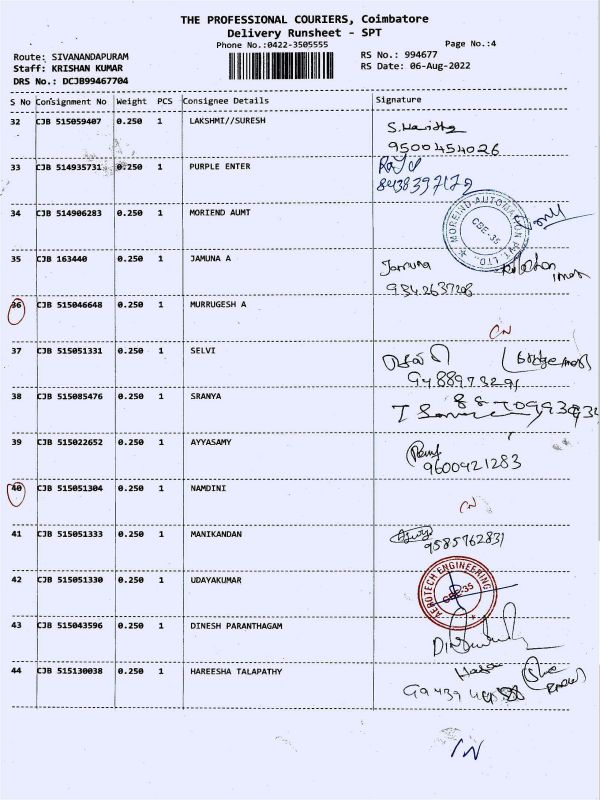 THE PROFESSIONAL COURIERS, Coimbatore
Delivery Runsheet - SPT
Phone No.:0422-3505555
Page No.:4
Route: SIVANANDAPURAM
RS No.: 994677
Staff: KRISHAN KUMAR
RS Date: 06-Aug-2022
DRS No.: DCJB99467704
S No Consignment No Weight PCS Consignee Details Signature
32 CJB 515059407 0.250 1 LAKSHMI//SURESH
9500454026
33 CJB 514935731 0.250 1 PURPLE ENTER
8438397172
34 CJB 514906283 0.250 1 MORIEND AUMT
MOREIND AUTOMATION PVT. LTD.
CBE-35
35 CJB 163440 0.250 1 JAMUNA A
Jamuna
9342637208
36 CJB 515046648 0.250 1 MURRUGESH A
37 CJB 515051331 0.250 1 SELVI
38 CJB 515085476 0.250 1 SRANYA
39 CJB 515022652 0.250 1 AYYASAMY
9600921283
40 CJB 515051304 0.250 1 NAMDINI
41 CJB 515051333 0.250 1 MANIKANDAN
9585762831
42 CJB 515051330 0.250 1 UDAYAKUMAR
AEROTECH ENGINEERING
CBE-35
43 CJB 515043596 0.250 1 DINESH PARANTHAGAM
44 CJB 515130038 0.250 1 HAREESHA TALAPATHY